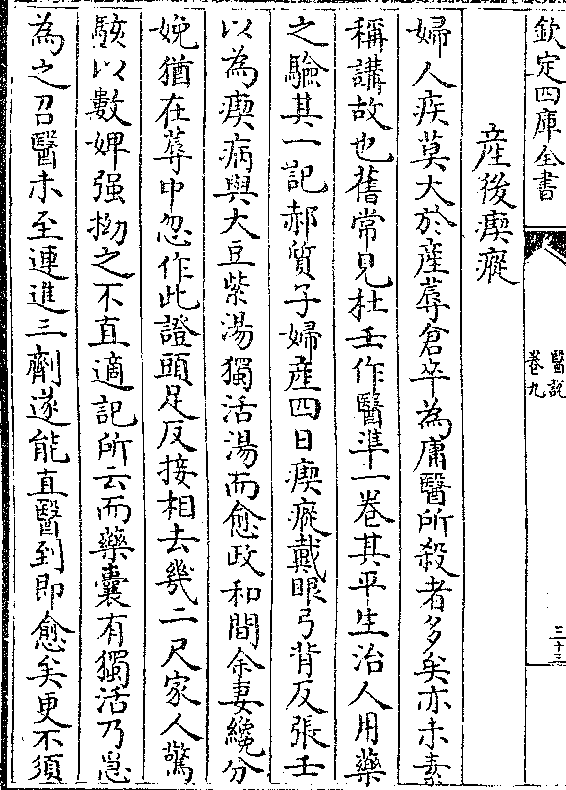 欽定四庫全書
醫説
卷九
三十三
産後瘈瘲
婦人疾莫大於産蓐倉卒為庸醫所殺者多矣亦未素
稱講故也舊常見杜壬作醫準一卷其平生治人用藥
之驗其一記郝質子婦産四日瘈瘲戴眼弓背反張壬
以為瘈病與大豆紫湯獨活湯而愈政和間余妻纔分
娩猶在蓐中忽作此證頭足反接相去幾二尺家人驚
駭以數婢强拗之不直適記所云而藥囊有獨活乃急
為之召醫未至連進三劑遂能直醫到即愈矣更不須